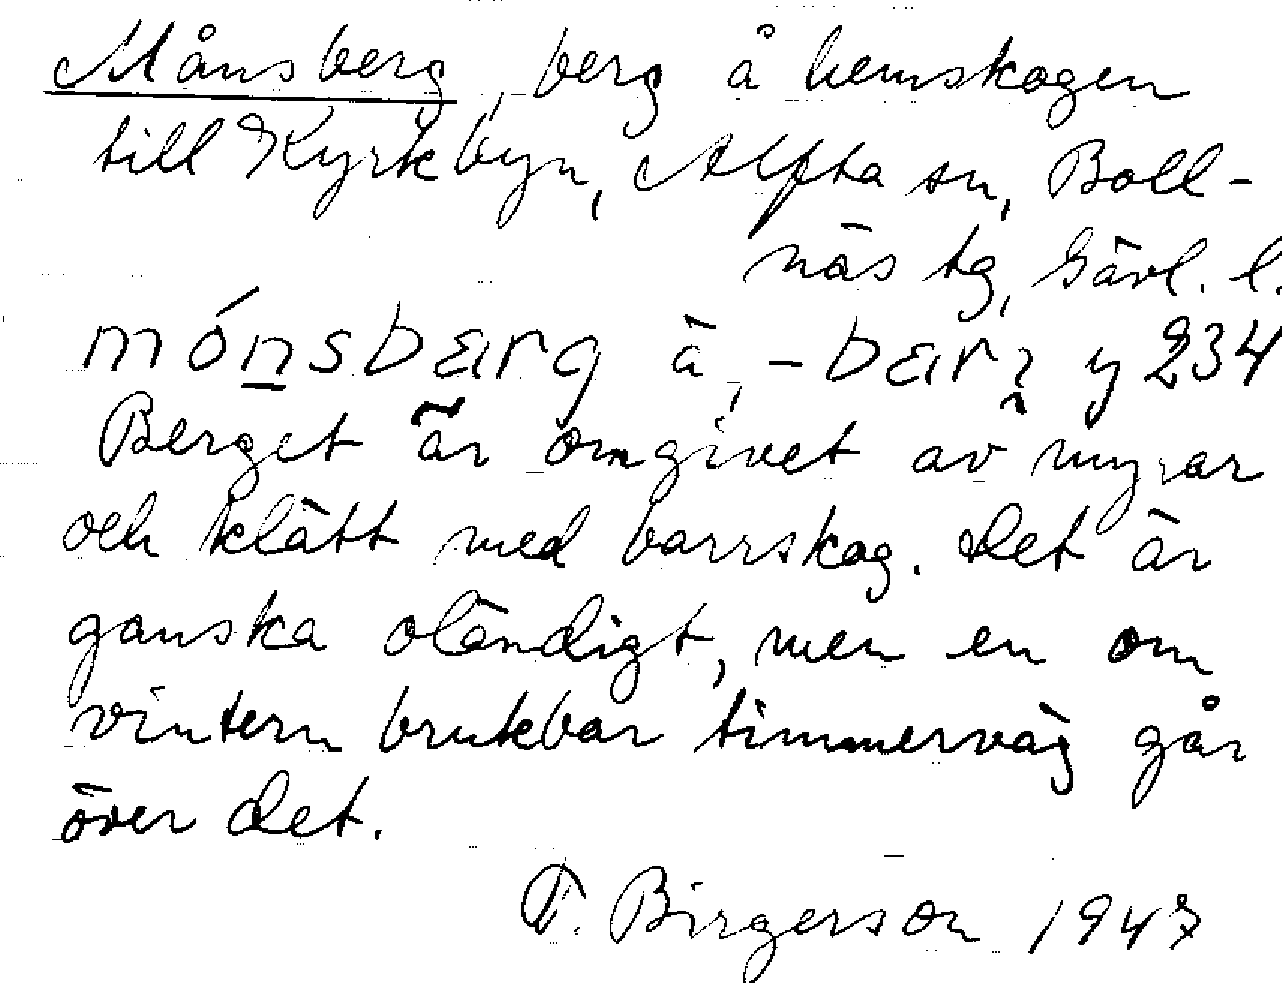 Månsberg, berg å hemskogen
till Kyrkbyn, Alfta sn, Boll-
näs tg, Gävl. l.
mónsbærg ä, -bær y 234
Berget är omgivet av myrar
och klätt med barrskog. Det är
ganska oländigt, men en om
vintern brukbar timmerväg går
över det.
F. Birgerson 1947